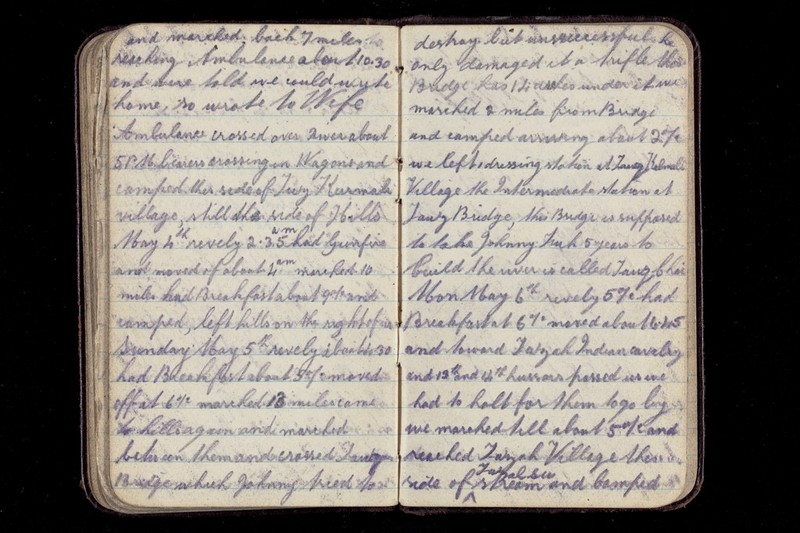 and marched back 7 miles
reaching Ambulance about 10.30
and were told we could write
home, so wrote to Wife
Ambulance crossed over River about
5 P.M. bearers crossing in Wagons and
camped this side of Tuz Kurmali
village, still this side of Hills
May 4th revely 2.35 am had Gunfire
and moved of about 4 am marched 10
miles had Breakfast about and
camped, left hills on the right of us
Sunday May 5th revely about 4.30
had Breakfast about moved
off at marched 13 miles come
to hills again and marched
between them and crossed
Bridge which Johnny tried to
destroy but unsuccessful he
only damaged it a trifle this
Bridge has 12 under it we
marched 2 miles from Bridge
and camped arriving about
we left dressing station at
Village the Intermediate station at
Tawq Bridge, this Bridge is supposed
to take Johnny Turk 5 years to
Build the river is called Tauq Chai
Mon May 6th revely had
Breakfast at moved about
and toward Tazah Indian cavalry
and 13th and 14th hussars passed us we
had to halt for them to go by
we marched till about and
reached Tazah Village this
side of stream and camped